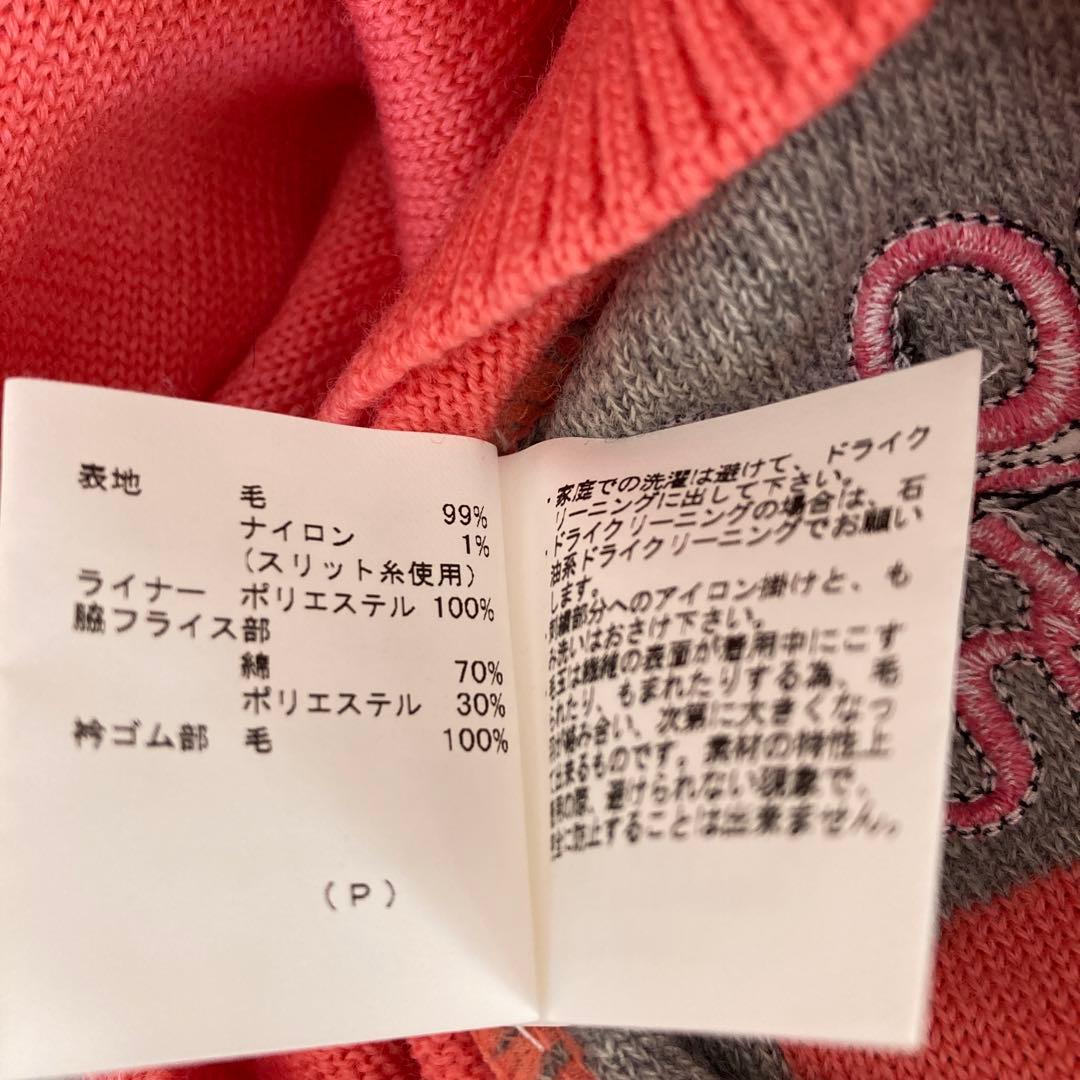 表地
毛 99%
ナイロン 1%
(スリット糸使用)
ライナー ポリエステル 100%
脇フライス部
綿 70%
ポリエステル 30%
衿ゴム部 毛 100%
(P)
・家庭での洗濯は避けて、ドライク
リーニングに出して下さい。
・ドライクリーニングの場合は、石
油系ドライクリーニングでお願い
します。
・刺繍部分へのアイロン掛けと、も
み洗いはおさけ下さい。
毛玉は繊維の表面が着用中にこす
られたり、もまれたりする為、毛
が絡み合い、次第に大きくなっ
て出来るものです。素材の特性上
の際、避けられない現象で、
に防止することは出来ません。